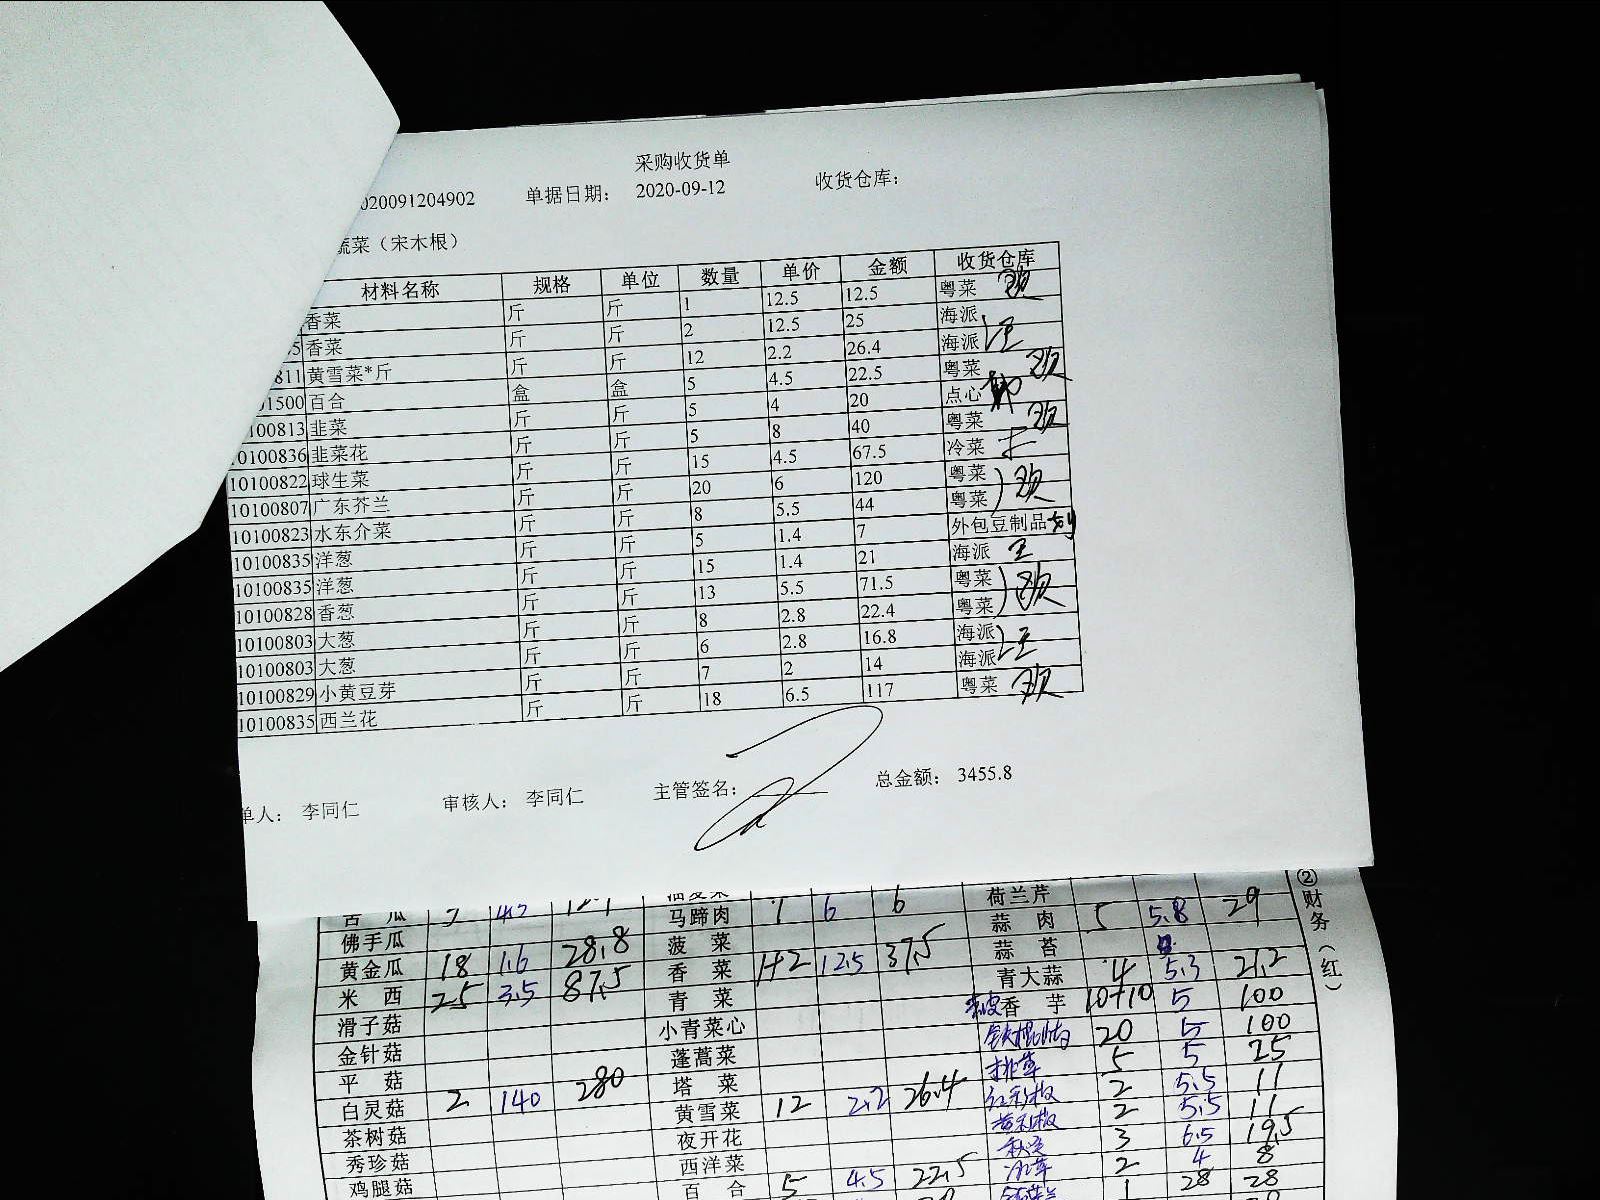 采购收货单
020091204902 单据日期： 2020-09-12 收货仓库：
蔬菜（宋木根）
材料名称 规格 单位 数量 单价 金额 收货仓库
香菜 斤 斤 1 12.5 12.5 粤菜
香菜 斤 斤 2 12.5 25 海派
811 黄雪菜*斤 斤 斤 12 2.2 26.4 海派
01500 百合 盒 盒 5 4.5 22.5 粤菜
0100813 韭菜 斤 斤 5 4 20 点心
10100836 韭菜花 斤 斤 5 8 40 粤菜
10100822 球生菜 斤 斤 15 4.5 67.5 冷菜
10100807 广东芥兰 斤 斤 20 6 120 粤菜
10100823 水东介菜 斤 斤 8 5.5 44 粤菜
10100835 洋葱 斤 斤 5 1.4 7 外包豆制品
10100835 洋葱 斤 斤 15 1.4 21 海派 王
10100828 香葱 斤 斤 13 5.5 71.5 粤菜
10100803 大葱 斤 斤 8 2.8 22.4 粤菜
10100803 大葱 斤 斤 6 2.8 16.8 海派
10100829 小黄豆芽 斤 斤 7 2 14 海派
10100835 西兰花 斤 斤 18 6.5 117 粤菜
单人： 李同仁 审核人： 李同仁 主管签名： 总金额： 3455.8
苦瓜 荷兰芹
佛手瓜 马蹄肉 1 6 6 蒜肉 5 5.8 29
黄金瓜 18 1.6 28.8 菠菜 蒜苔
米西 25 3.5 87.5 香菜 1+2 12.5 37.5 青大蒜 4 5.3 21.2
滑子菇 青菜 香芋 10+10 5 100
金针菇 小青菜心 20 5 100
平菇 蓬蒿菜 5 5 25
白灵菇 2 140 280 塔菜 2 5.5 11
茶树菇 黄雪菜 12 2.2 26.4 2 5.5 11
秀珍菇 夜开花 3 6.5 19.5
鸡腿菇 西洋菜 2 4 8
百合 5 4.5 22.5 1 28 28
②财务（红）